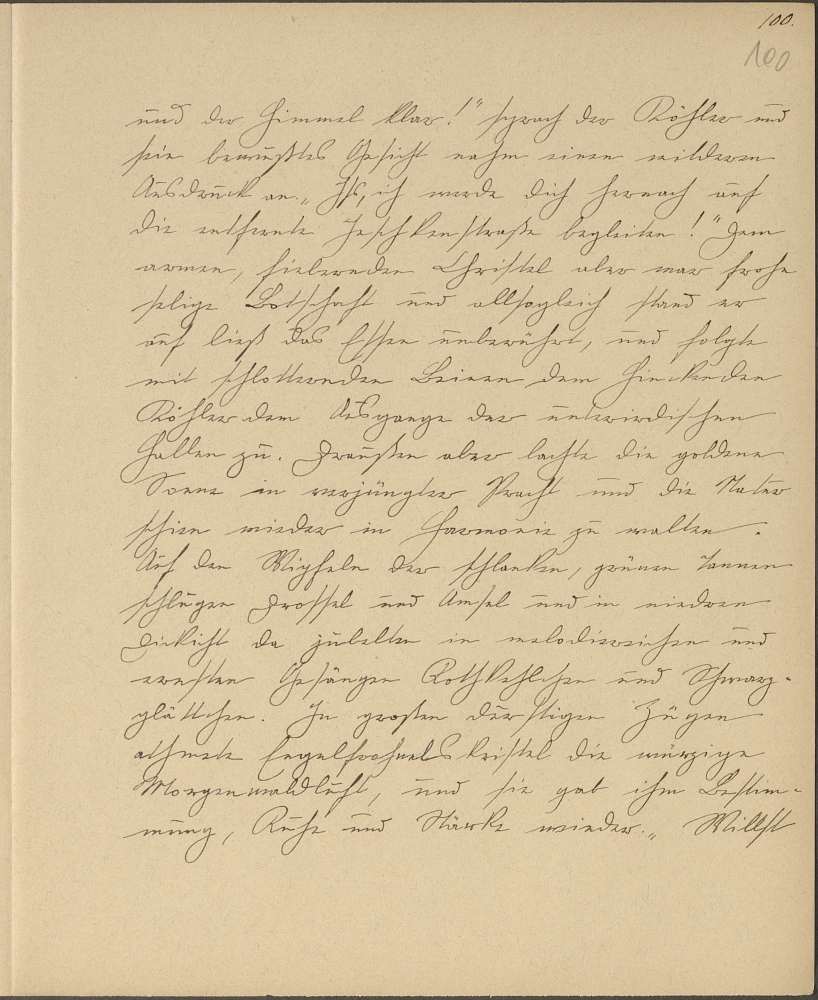 100.
100
und der Himmel klar!" sprach der Köhler und
sein berußtes Gesicht nahm einen milderen
Ausdruck an. „Iß, ich werde dich hernach auf
die entfernte Jeschkenstraße begleiten!" Dem
armen, fiebernden Christel aber war frohe
selige Botschaft und allsogleich stand er
auf ließ das Essen unberührt, und folgte
mit schlotternden Beinen dem hinkenden
Köhler dem Ausgange der unterirdischen
Hallen zu. Draußen aber lachte die goldene
Sonne in verjüngter Pracht und die Natur
schien wieder in Harmonie zu walten.
Auf den Wipfeln der schlanken, grünen Tannen
schlugen Drossel und Amsel und in niedren
Dickicht da jubelten in melodiereichen und
ernsten Gesängen Rothkehlchen und Schwarz-
plättchen. In großen durstigen Zügen
athmete die würzige
Morgenwaldluft, und sie gab ihm Bestim-
mung, Ruhe und Stärke wieder. „Willst